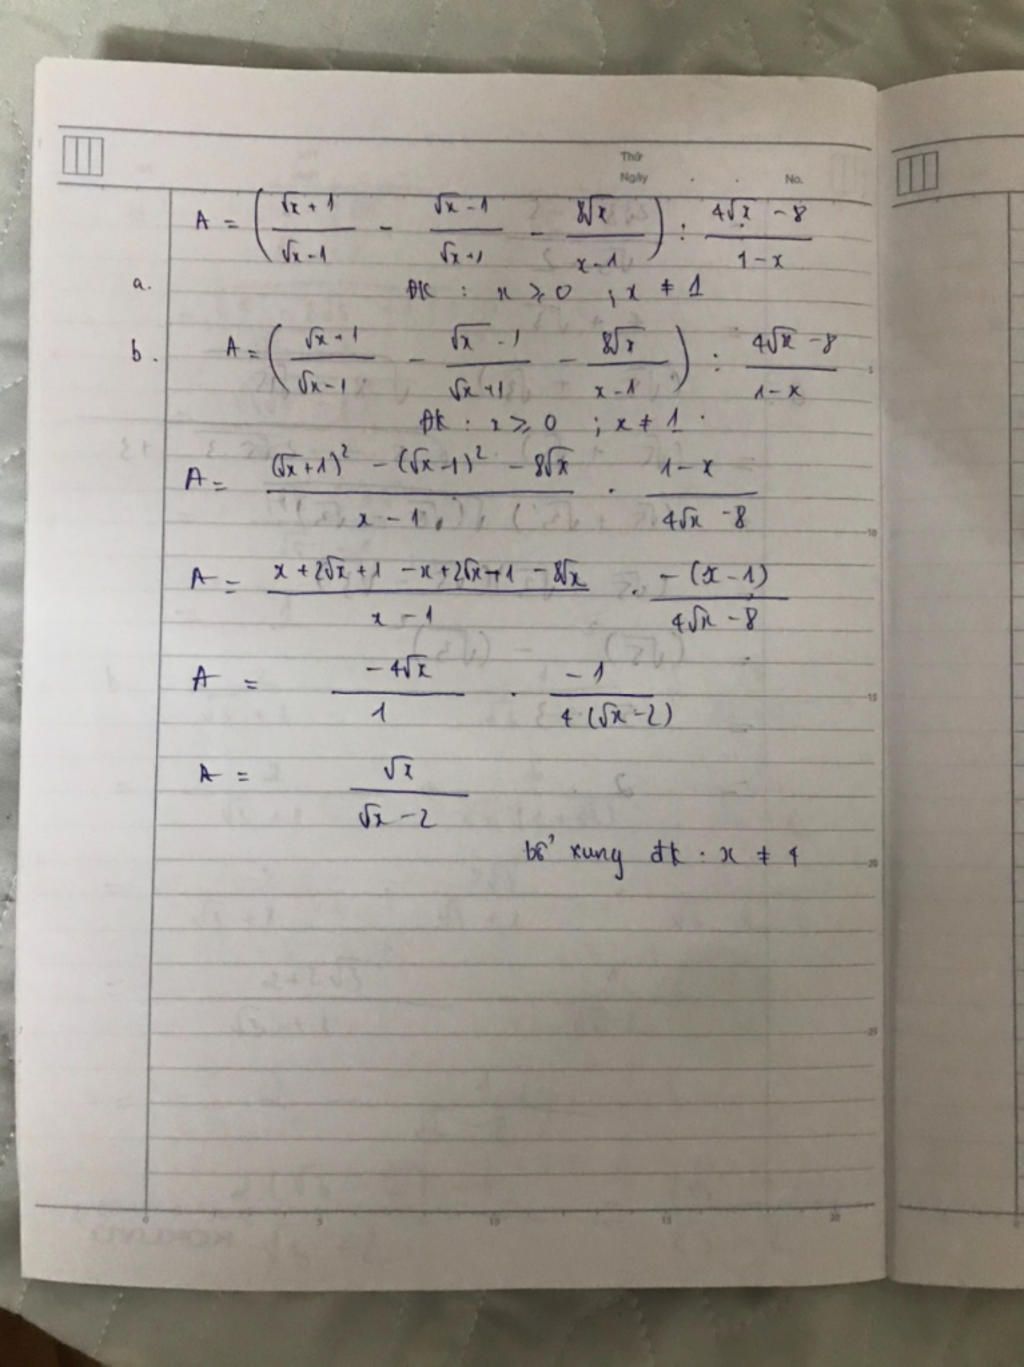 Thứ
Ngày . . No.
A = ( (√x + 1)/(√x - 1) - (√x - 1)/(√x + 1) - 8√x/(x - 1) ) : (4√x - 8)/(1 - x)
a. ĐK : x ≥ 0 ; x ≠ 1
b. A = ( (√x + 1)/(√x - 1) - (√x - 1)/(√x + 1) - 8√x/(x - 1) ) : (4√x - 8)/(1 - x)
ĐK : x ≥ 0 ; x ≠ 1 .
A = ((√x + 1)² - (√x - 1)² - 8√x)/(x - 1) . (1 - x)/(4√x - 8)
A = (x + 2√x + 1 - x + 2√x - 1 - 8√x)/(x - 1) . -(x - 1)/(4√x - 8)
A = -4√x/1 . -1/(4(√x - 2))
A = √x/(√x - 2)
bổ xung đk . x ≠ 4
5
10
15
20
25
0 5 10 15 20
No.